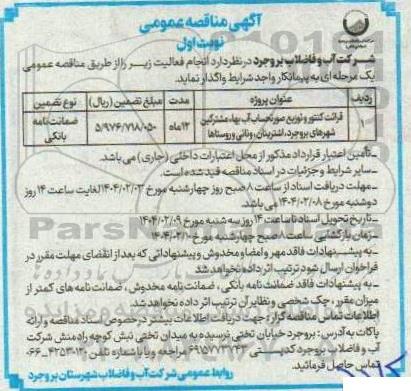 آگهی مناقصه عمومی
نوبت اول
شرکت آب و فاضلاب بروجرد در نظر دارد انجام فعالیت زیر را از طریق مناقصه عمومی
یک مرحله ای به پیمانکار واجد شرایط واگذار نماید.
ردیف عنوان پروژه مدت مبلغ تضمین (ریال) نوع تضمین
۱ قرائت کنتور و توزیع صورتحساب آب بها، مشترکین شهرهای بروجرد، اشترینان، ونائی و روستاها ۱۲ماه ۵/۹۷۶/۷۱۸/۰۵۰ ضمانت‌نامه بانکی
ـ تأمین اعتبار قرارداد مذکور از محل اعتبارات داخلی (جاری) می باشد.
ـ سایر شرایط و جزئیات در اسناد مناقصه قید شده است.
ـ مهلت دریافت اسناد از ساعت ۸ صبح روز چهارشنبه مورخ ۱۴۰۴/۰۲/۰۳ لغایت ساعت ۱۴ روز
دوشنبه مورخ ۱۴۰۴/۰۲/۰۸ می باشد.
ـ تاریخ تحویل اسناد تا ساعت ۱۴ روز سه شنبه مورخ ۱۴۰۴/۰۲/۰۹
ـ زمان بازگشایی ساعت ۸ صبح چهارشنبه مورخ ۱۴۰۴/۰۲/۱۰
ـ به پیشنهادات فاقد مهر و امضا و مخدوش و پیشنهاداتی که بعد از انقضای مهلت مقرر در
فراخوان ارسال شود ترتیب اثر داده نخواهد شد.
ـ به پیشنهادات فاقد ضمانت نامه بانکی، ضمانت نامه مخدوش، ضمانت نامه های کمتر از
میزان مقرر، چک شخصی و نظایر آن ترتیب اثر داده نخواهد شد.
اطلاعات تماس مناقصه گزار: جهت دریافت اطلاعات بیشتر درخصوص اسناد مناقصه و ارائه
پاکات به آدرس: بروجرد خیابان تختی نرسیده به میدان تختی نبش کوچه رادمنش شرکت
آب و فاضلاب بروجرد کدپستی مراجعه و یا با شماره تلفن
تماس حاصل فرمائید.
روابط عمومی شرکت آب و فاضلاب شهرستان بروجرد